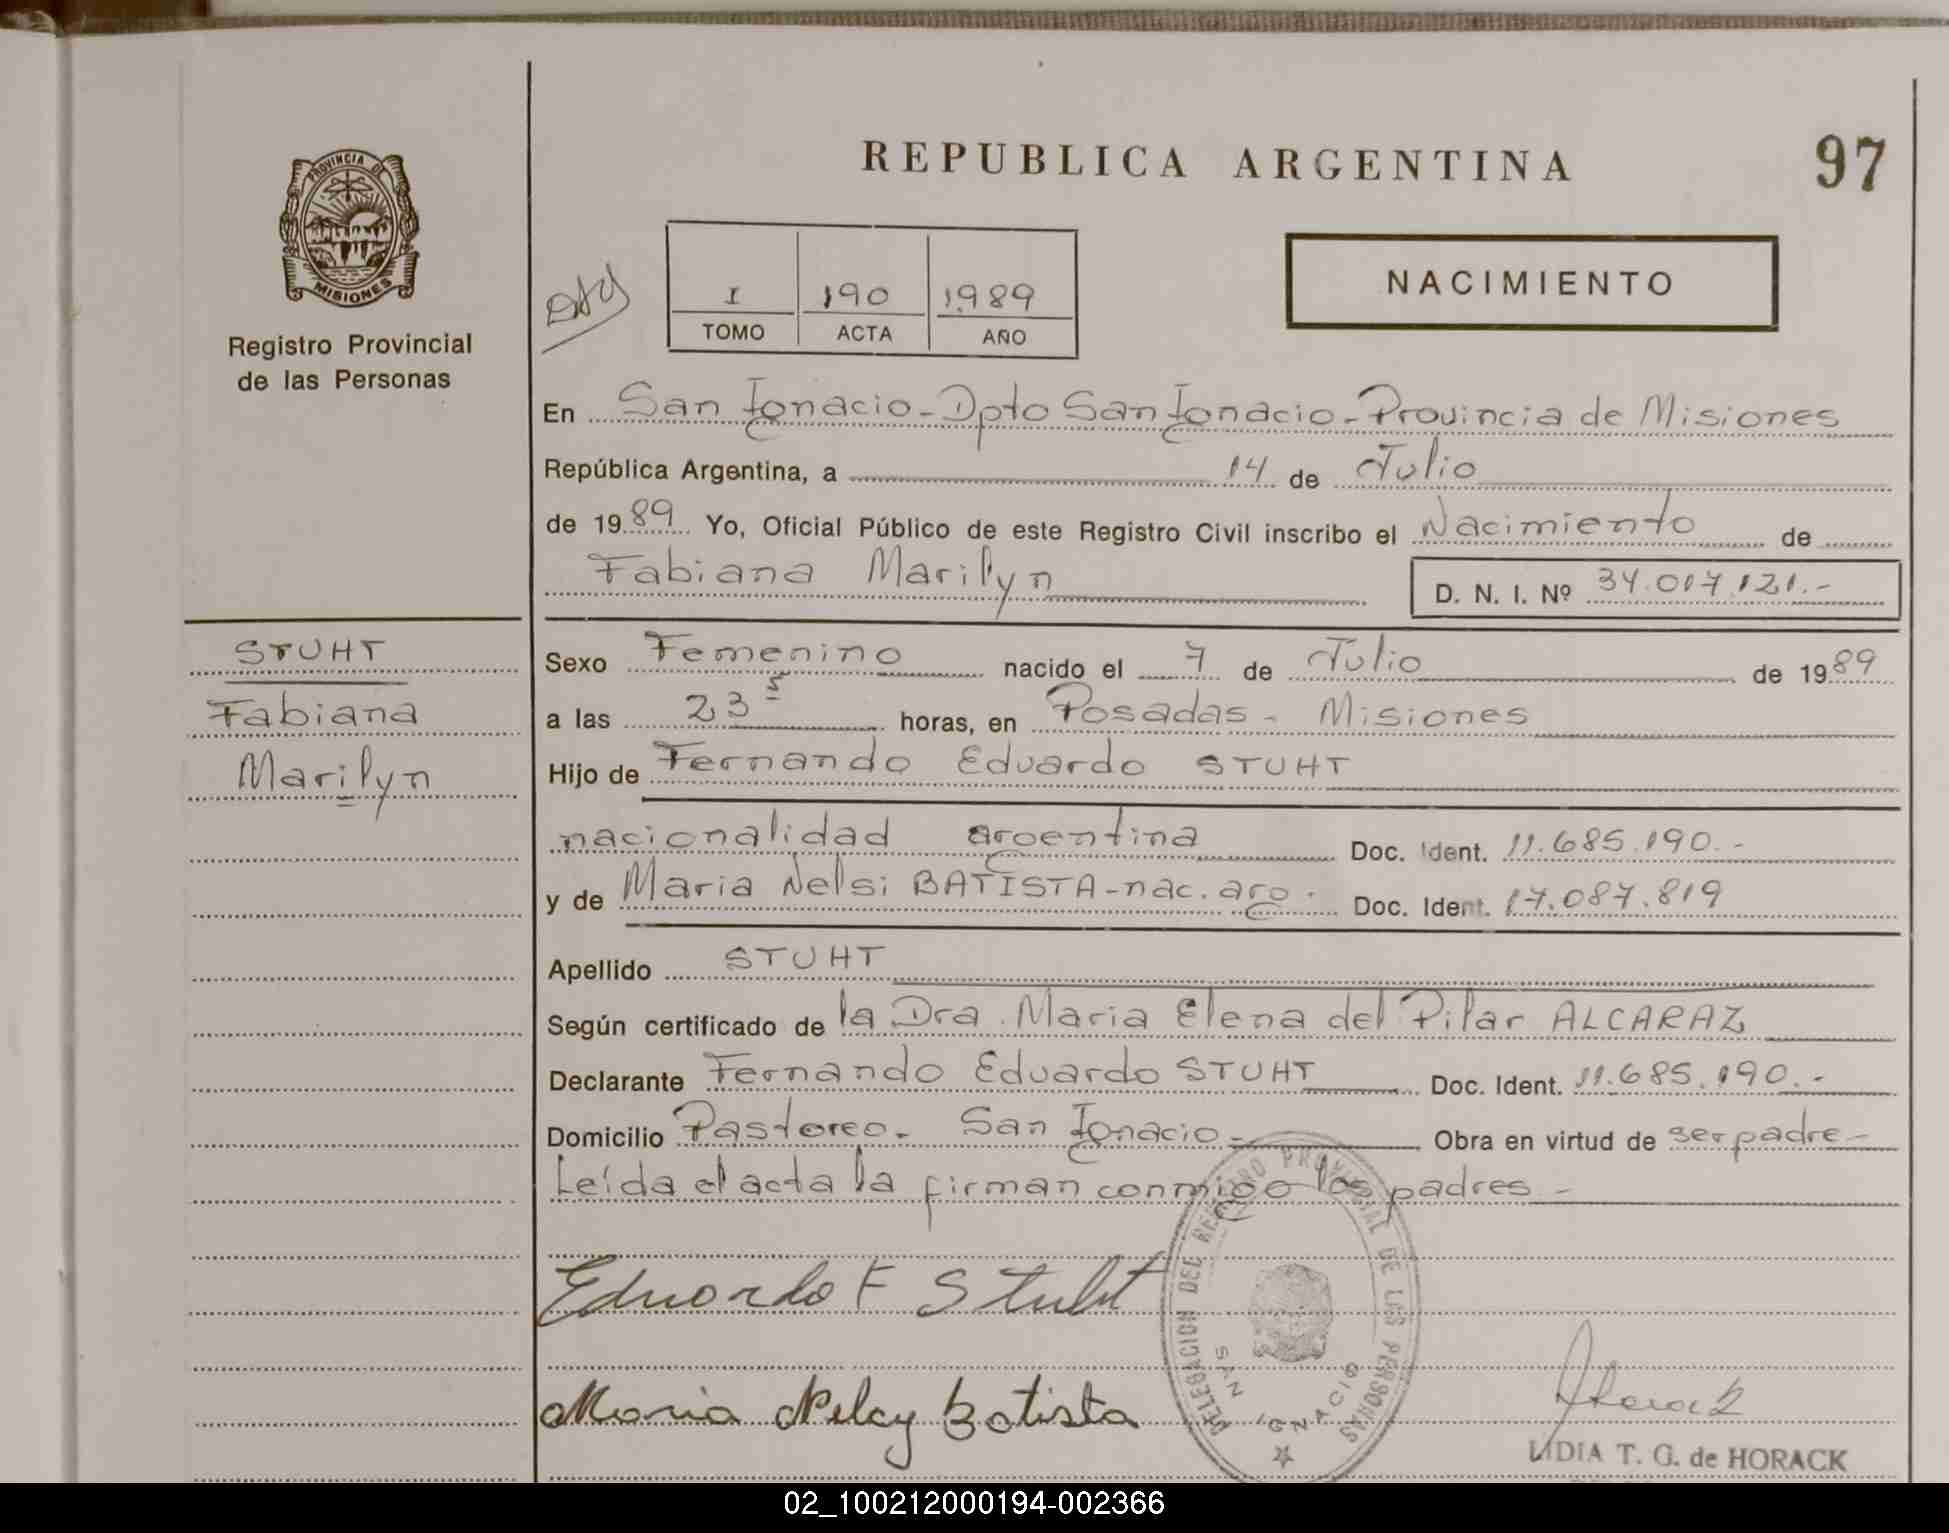 REPUBLICA ARGENTINA
97
PROVINCIA DE
MISIONES
Registro Provincial
de las Personas
I 190 1989
TOMO ACTA AÑO
NACIMIENTO
En San Ignacio - Dpto San Ignacio - Provincia de Misiones
República Argentina, a 14 de Julio
de 1989 Yo, Oficial Público de este Registro Civil inscribo el Nacimiento de
Fabiana Marilyn
D. N. I. Nº 34.017.121.-
STUHT
Fabiana
Marilyn
Sexo Femenino nacido el 7 de Julio de 1989
a las 23 5 horas, en Posadas - Misiones
Hijo de Fernando Eduardo STUHT
nacionalidad argentina Doc. Ident. 11.685.190.-
y de Maria Nelsi BATISTA - nac. arg. Doc. Ident. 17.087.819
Apellido STUHT
Según certificado de la Dra. Maria Elena del Pilar ALCARAZ
Declarante Fernando Eduardo STUHT Doc. Ident. 11.685.190.-
Domicilio Pastoreo. San Ignacio - Obra en virtud de ser padre -
Leída el acta la firman conmigo los padres -
Eduardo F Stuht
Maria Nelcy Batista
DELEGACION DEL REGISTRO PROVINCIAL DE LAS PERSONAS
SAN IGNACIO
Horack
LIDIA T. G. de HORACK
02_100212000194-002366